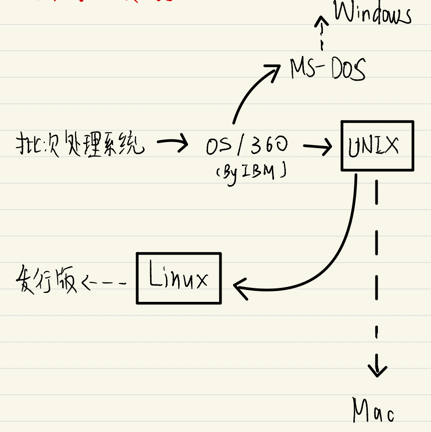 Windows
MS-DOS
批次处理系统 OS/360 UNIX
(By IBM)
发行版 Linux
Mac